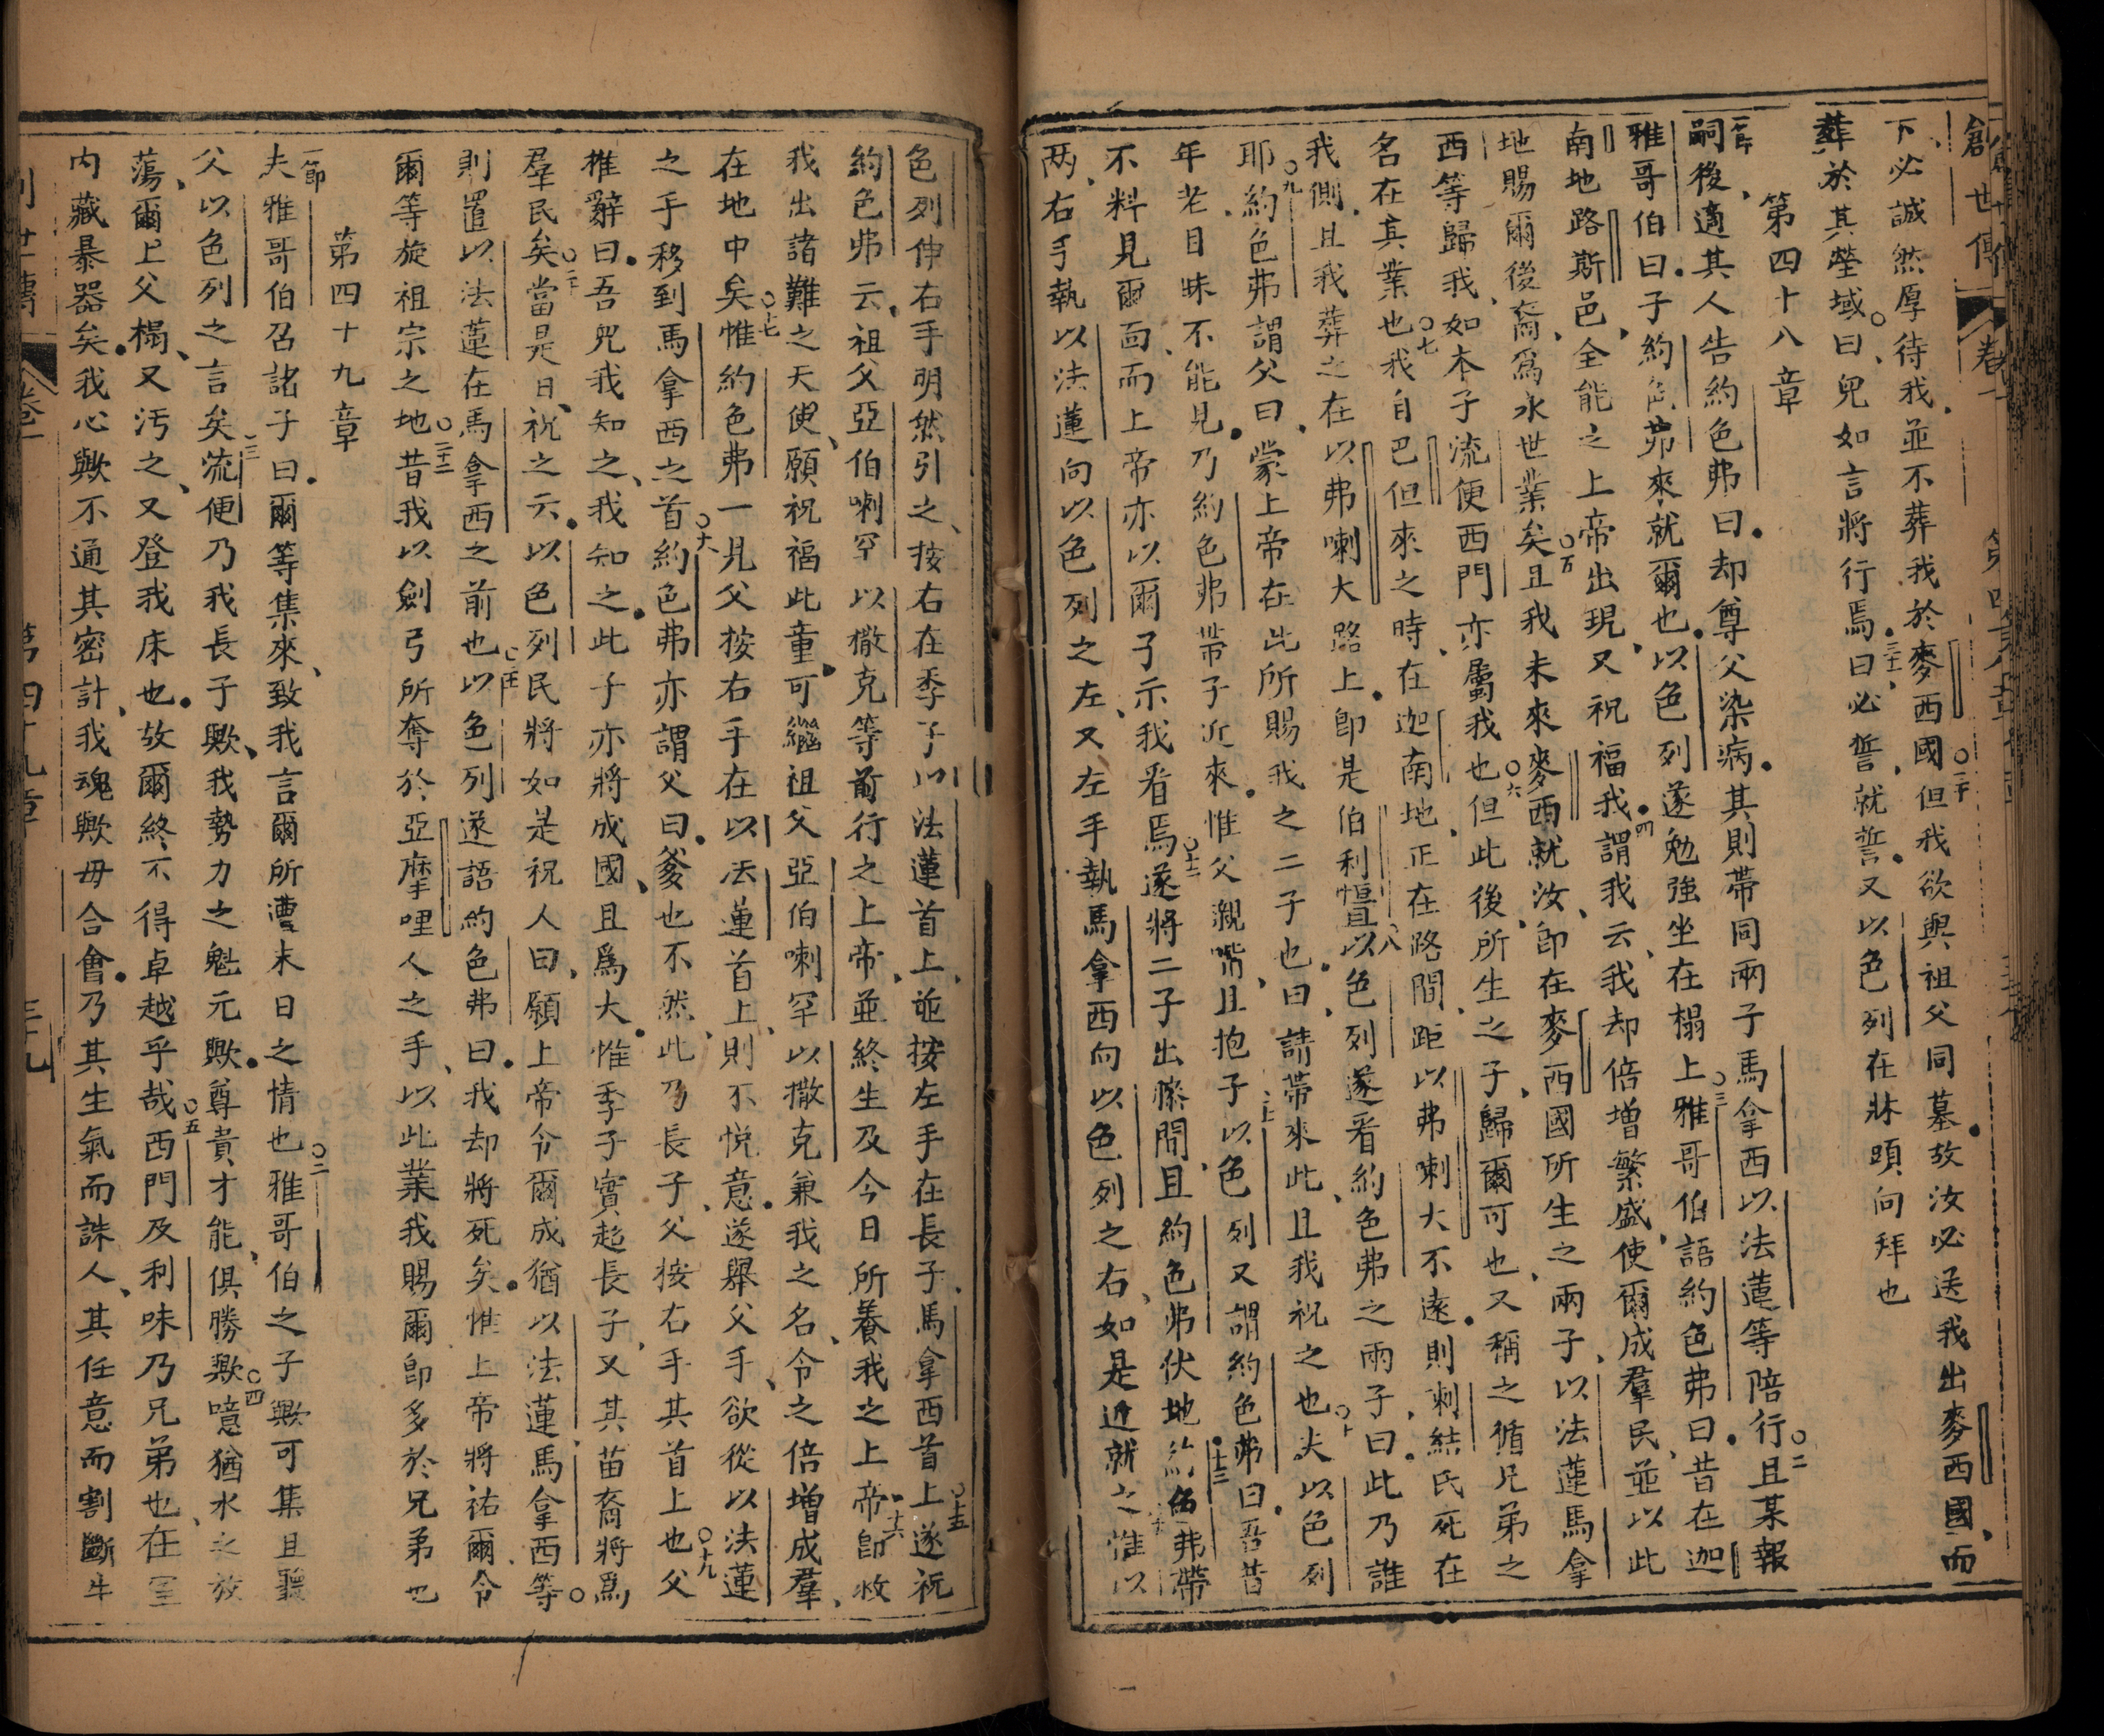 創世傳 卷一 第四十八章
下必誠然厚待我並不葬我於麥西國○三十但我欲與祖父同墓故汝必送我出麥西國而
葬於其塋域○曰兒如言將行焉三十一曰必誓就誓又以色列在牀頭向拜也
第四十八章
一節嗣後適其人告約色弗曰却尊父染病其則帶同兩子馬拿西以法蓮等陪行○二且某報
雅哥伯曰子約色弗來就爾也以色列遂勉強坐在榻上○三雅哥伯語約色弗曰昔在迦
南地路斯邑全能之上帝出現又祝福我四謂我云我却倍增繁盛使爾成羣民並以此
地賜爾後裔爲永世業矣○五且我未來麥西就汝卽在麥西國所生之兩子以法蓮馬拿
西等歸我如本子流便西門亦屬我也○六但此後所生之子歸爾可也又稱之循兄弟之
名在其業也○七我自巴但來之時在迦南地正在路間距以弗喇大不遠則剌結氏死在
我側且我葬之在以弗喇大路上卽是伯利恒○八以色列遂看約色弗之兩子曰此乃誰
耶○九約色弗謂父曰蒙上帝在此所賜我之二子也曰請帶來此且我祝之也○十夫以色列
年老目昧不能見乃約色弗帶子近來惟父親嘴且抱子十一以色列又謂約色弗曰吾昔
不料見爾面而上帝亦以爾子示我看焉○十二遂將二子出膝間且約色弗伏地十三約色弗帶
两右手執以法蓮向以色列之左又左手執馬拿西向以色列之右如是近就之惟以
色列伸右手明然引之按右在季子以法蓮首上並按左手在長子馬拿西首上○十五遂祝
約色弗云祖父亞伯喇罕以撒克等前行之上帝並終生及今日所養我之上帝十六卽救
我出諸難之天使願祝福此童可繼祖父亞伯喇罕以撒克兼我之名令之倍增成羣
在地中矣○十七惟約色弗一見父按右手在以法蓮首上則不悅意遂舉父手欲從以法蓮
之手移到馬拿西之首○十八約色弗亦謂父曰爹也不然此乃長子父按右手其首上也○十九父
推辭曰吾兒我知之我知之此子亦將成國且爲大惟季子實超長子又其苗裔將爲
羣民矣○二十當是日祝之云以色列民將如是祝人曰願上帝令爾成猶以法蓮馬拿西等○
則置以法蓮在馬拿西之前也○二十一以色列遂語約色弗曰我却將死矣惟上帝將祐爾令
爾等旋祖宗之地○二十二昔我以劍弓所奪於亞摩哩人之手以此業我賜爾卽多於兄弟也
第四十九章
一節夫雅哥伯召諸子曰爾等集來致我言爾所遭末日之情也○二雅哥伯之子歟可集且聽
父以色列之言矣○三流便乃我長子歟我勢力之魁元歟尊貴才能俱勝歟○四噫猶水之放
蕩爾上父榻又污之又登我床也故爾終不得卓越乎哉○五西門及利味乃兄弟也在室
內藏暴器矣我心歟不通其密計我魂歟毋合會乃其生氣而誅人其任意而割斷牛
創世傳 卷一 第四十九章 三十九